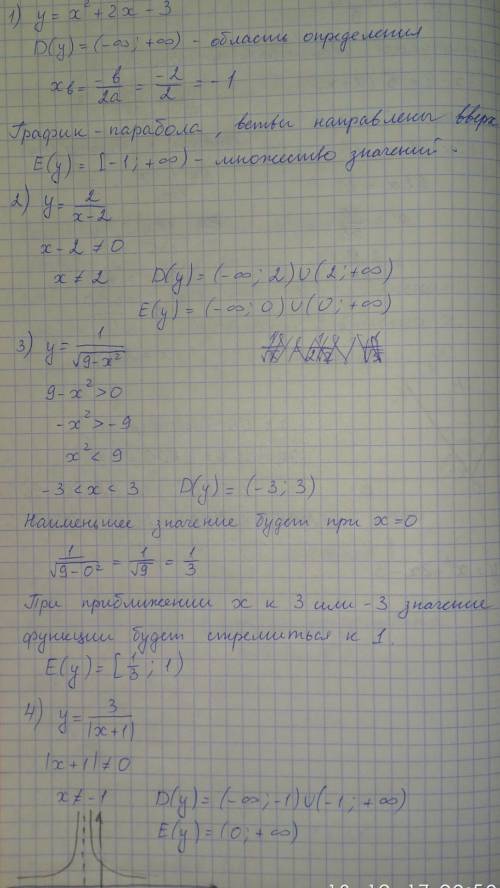 1) y = x² + 2x - 3
D(y) = (-∞; +∞) - область определения
xв = -в/2a = -2/2 = -1
График - парабола, ветви направлены вверх
E(y) = [-1; +∞) - множество значений.
2) y = 2/(x-2)
x - 2 ≠ 0
x ≠ 2 D(y) = (-∞; 2) ∪ (2; +∞)
E(y) = (-∞; 0) ∪ (0; +∞)
3) y = 1/√(9-x²)
9 - x² > 0
-x² > -9
x² < 9
-3 < x < 3 D(y) = (-3; 3)
Наименьшее значение будет при x = 0
1/√(9-0²) = 1/√9 = 1/3
При приближении x к 3 или -3 значение
функции будет стремиться к 1.
E(y) = [1/3; 1)
4) y = 3/|x+1|
|x+1| ≠ 0
x ≠ -1 D(y) = (-∞; -1) ∪ (-1; +∞)
E(y) = (0; +∞)